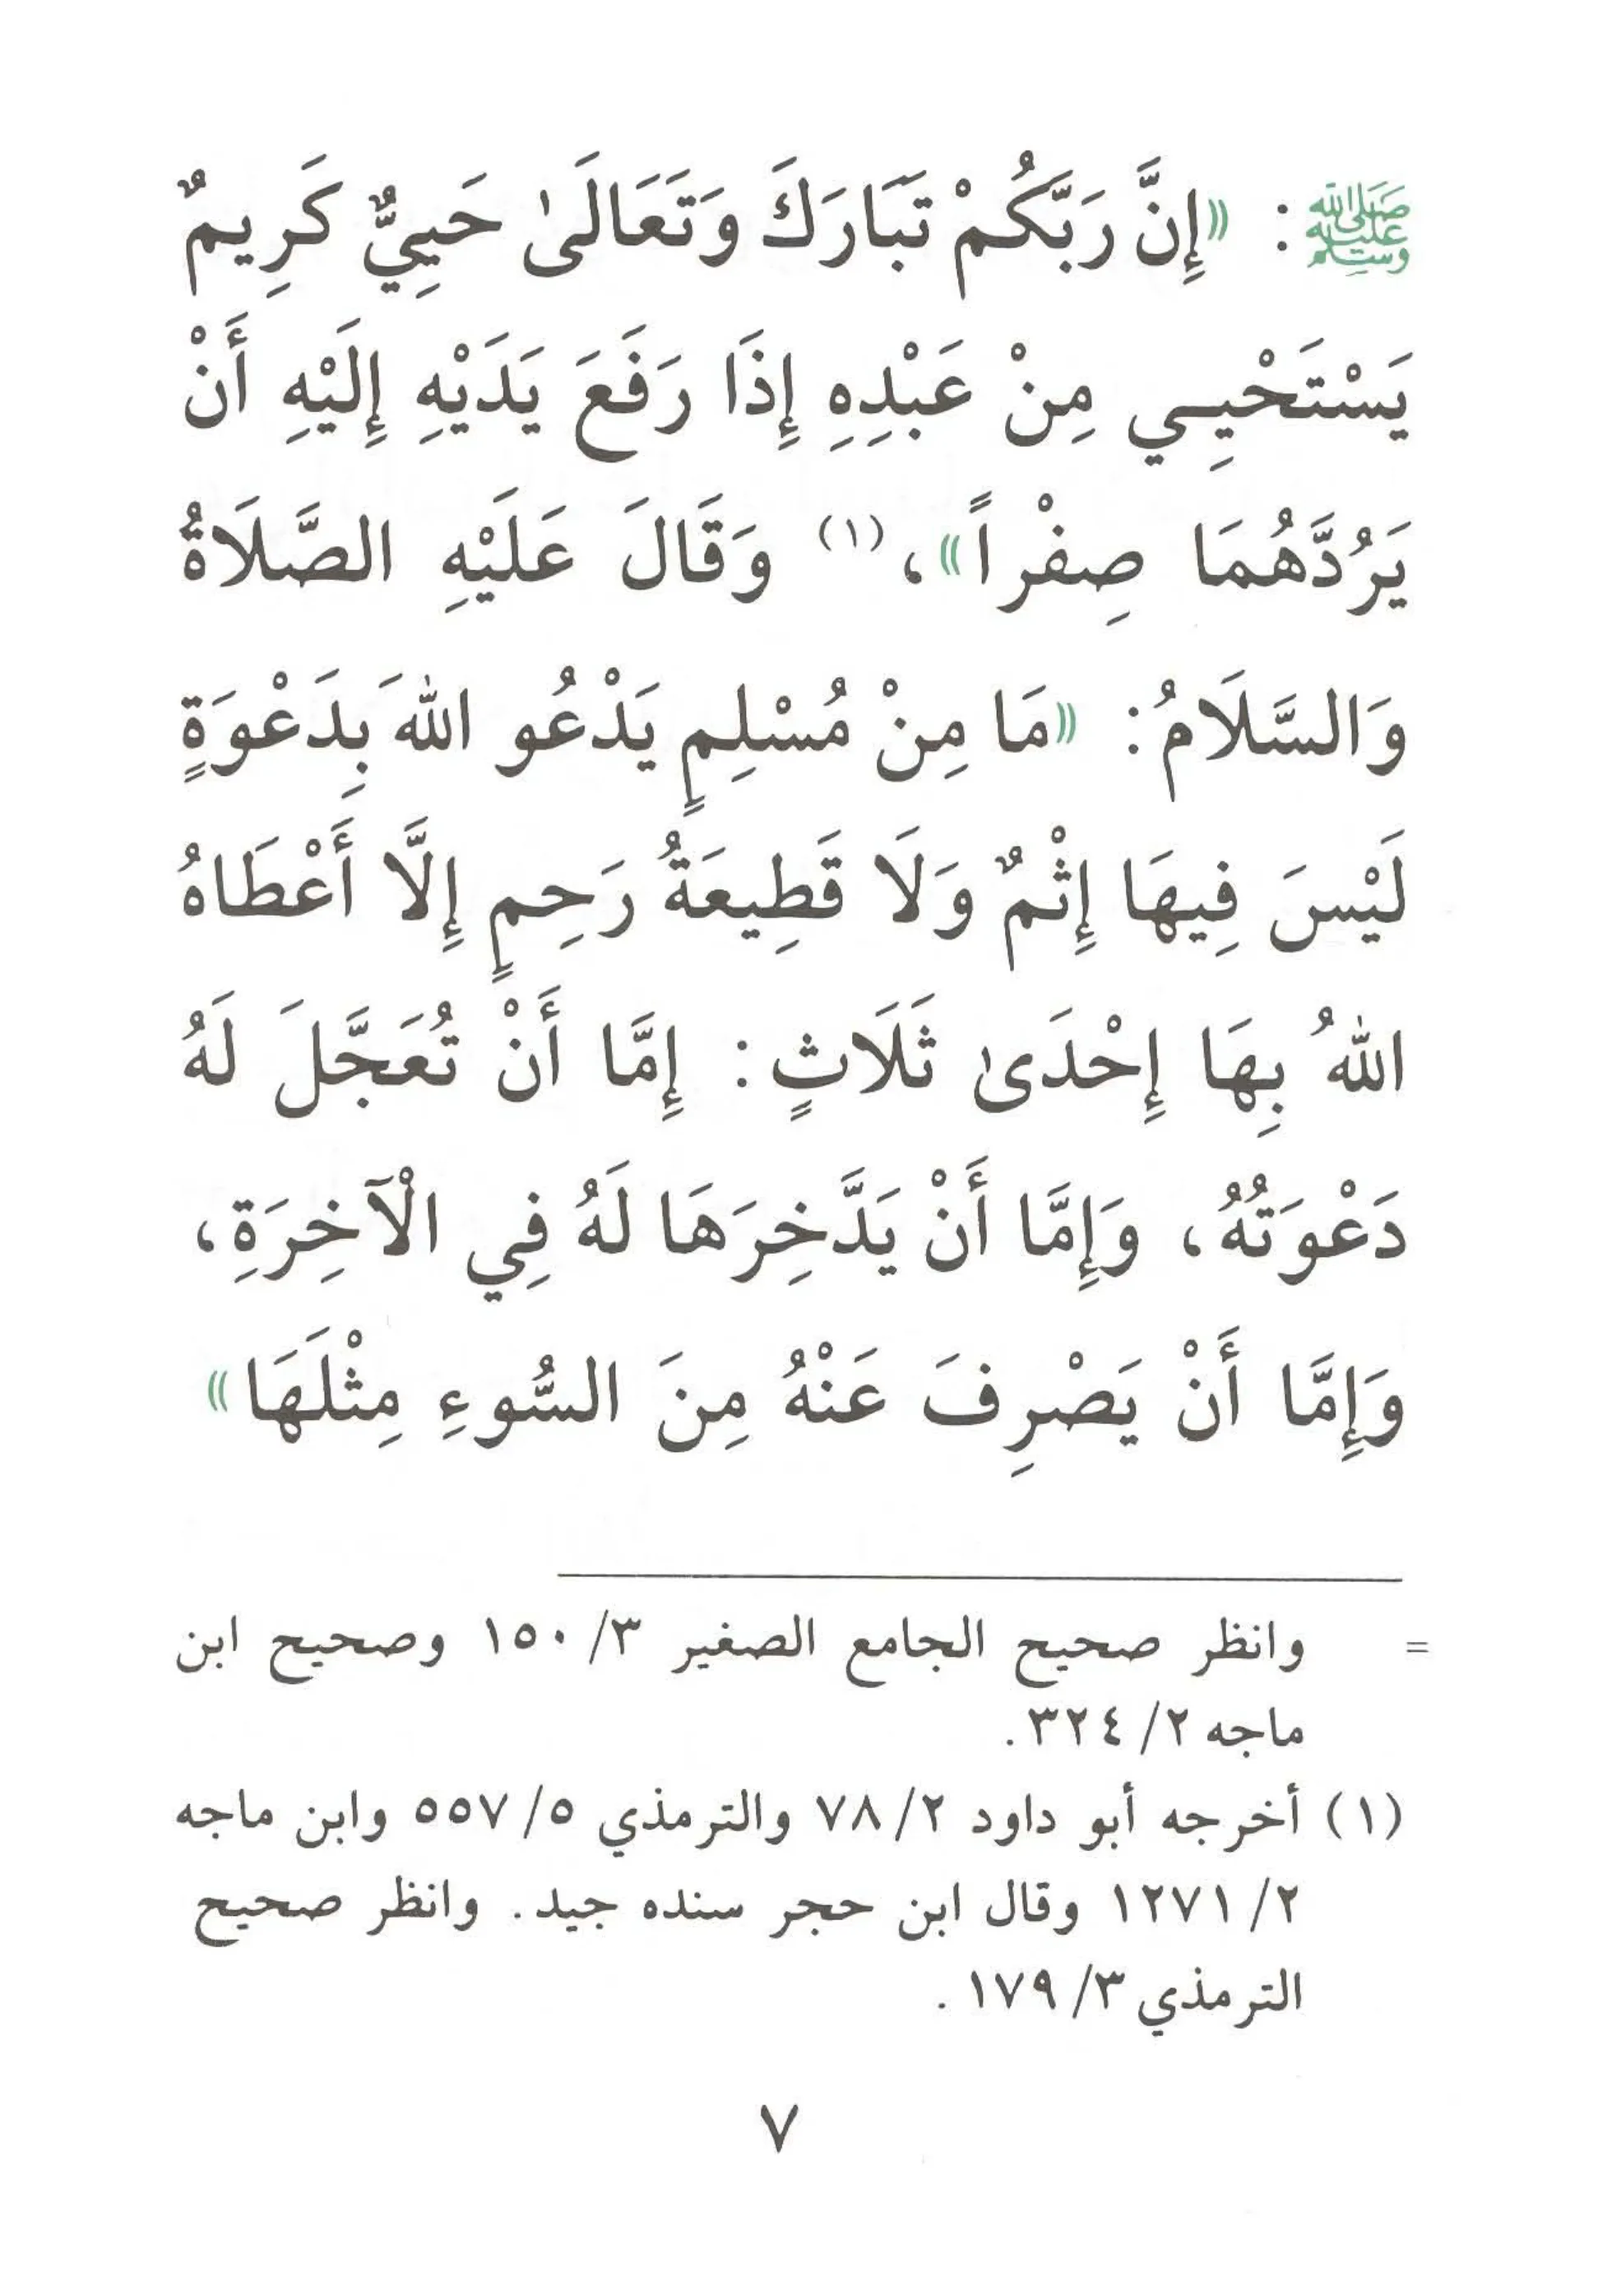 ﷺ: «إِنَّ رَبَّكُمْ تَبَارَكَ وَتَعَالَىٰ حَيِيٌّ كَرِيمٌ
يَسْتَحْيِي مِنْ عَبْدِهِ إِذَا رَفَعَ يَدَيْهِ إِلَيْهِ أَنْ
يَرُدَّهُمَا صِفْراً»،(١) وَقَالَ عَلَيْهِ الصَّلَاةُ
وَالسَّلَامُ: «مَا مِنْ مُسْلِمٍ يَدْعُو اللهَ بِدَعْوَةٍ
لَيْسَ فِيهَا إِثْمٌ وَلَا قَطِيعَةُ رَحِمٍ إِلَّا أَعْطَاهُ
اللهُ بِهَا إِحْدَىٰ ثَلَاثٍ: إِمَّا أَنْ تُعَجَّلَ لَهُ
دَعْوَتُهُ، وَإِمَّا أَنْ يَدَّخِرَهَا لَهُ فِي الْآخِرَةِ،
وَإِمَّا أَنْ يَصْرِفَ عَنْهُ مِنَ السُّوءِ مِثْلَهَا»
= وانظر صحيح الجامع الصغير ٣/ ١٥٠ وصحيح ابن
ماجه ٢/ ٣٢٤.
(١) أخرجه أبو داود ٢/ ٧٨ والترمذي ٥/ ٥٥٧ وابن ماجه
٢/ ١٢٧١ وقال ابن حجر سنده جيد. وانظر صحيح
الترمذي ٣/ ١٧٩.
٧